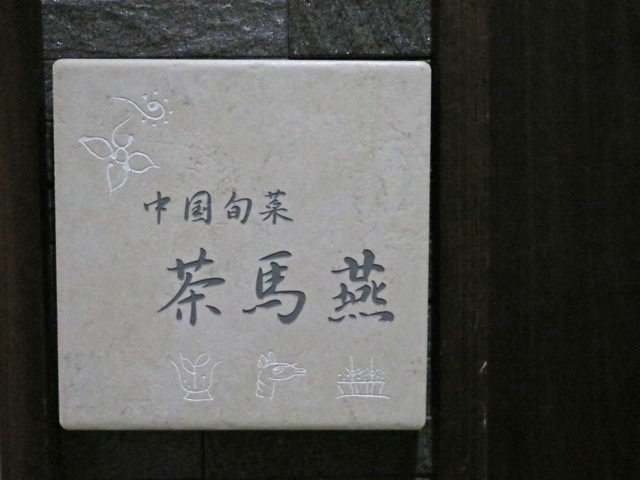 中国旬菜
茶馬燕